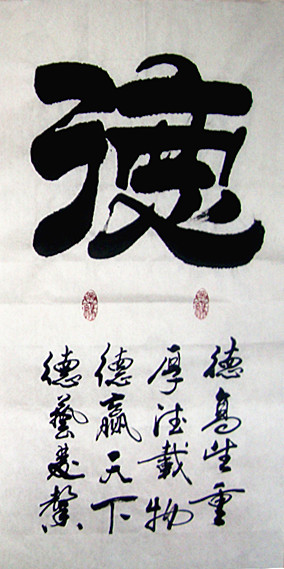 德
德高望重
厚德載物
德贏天下
德藝雙馨